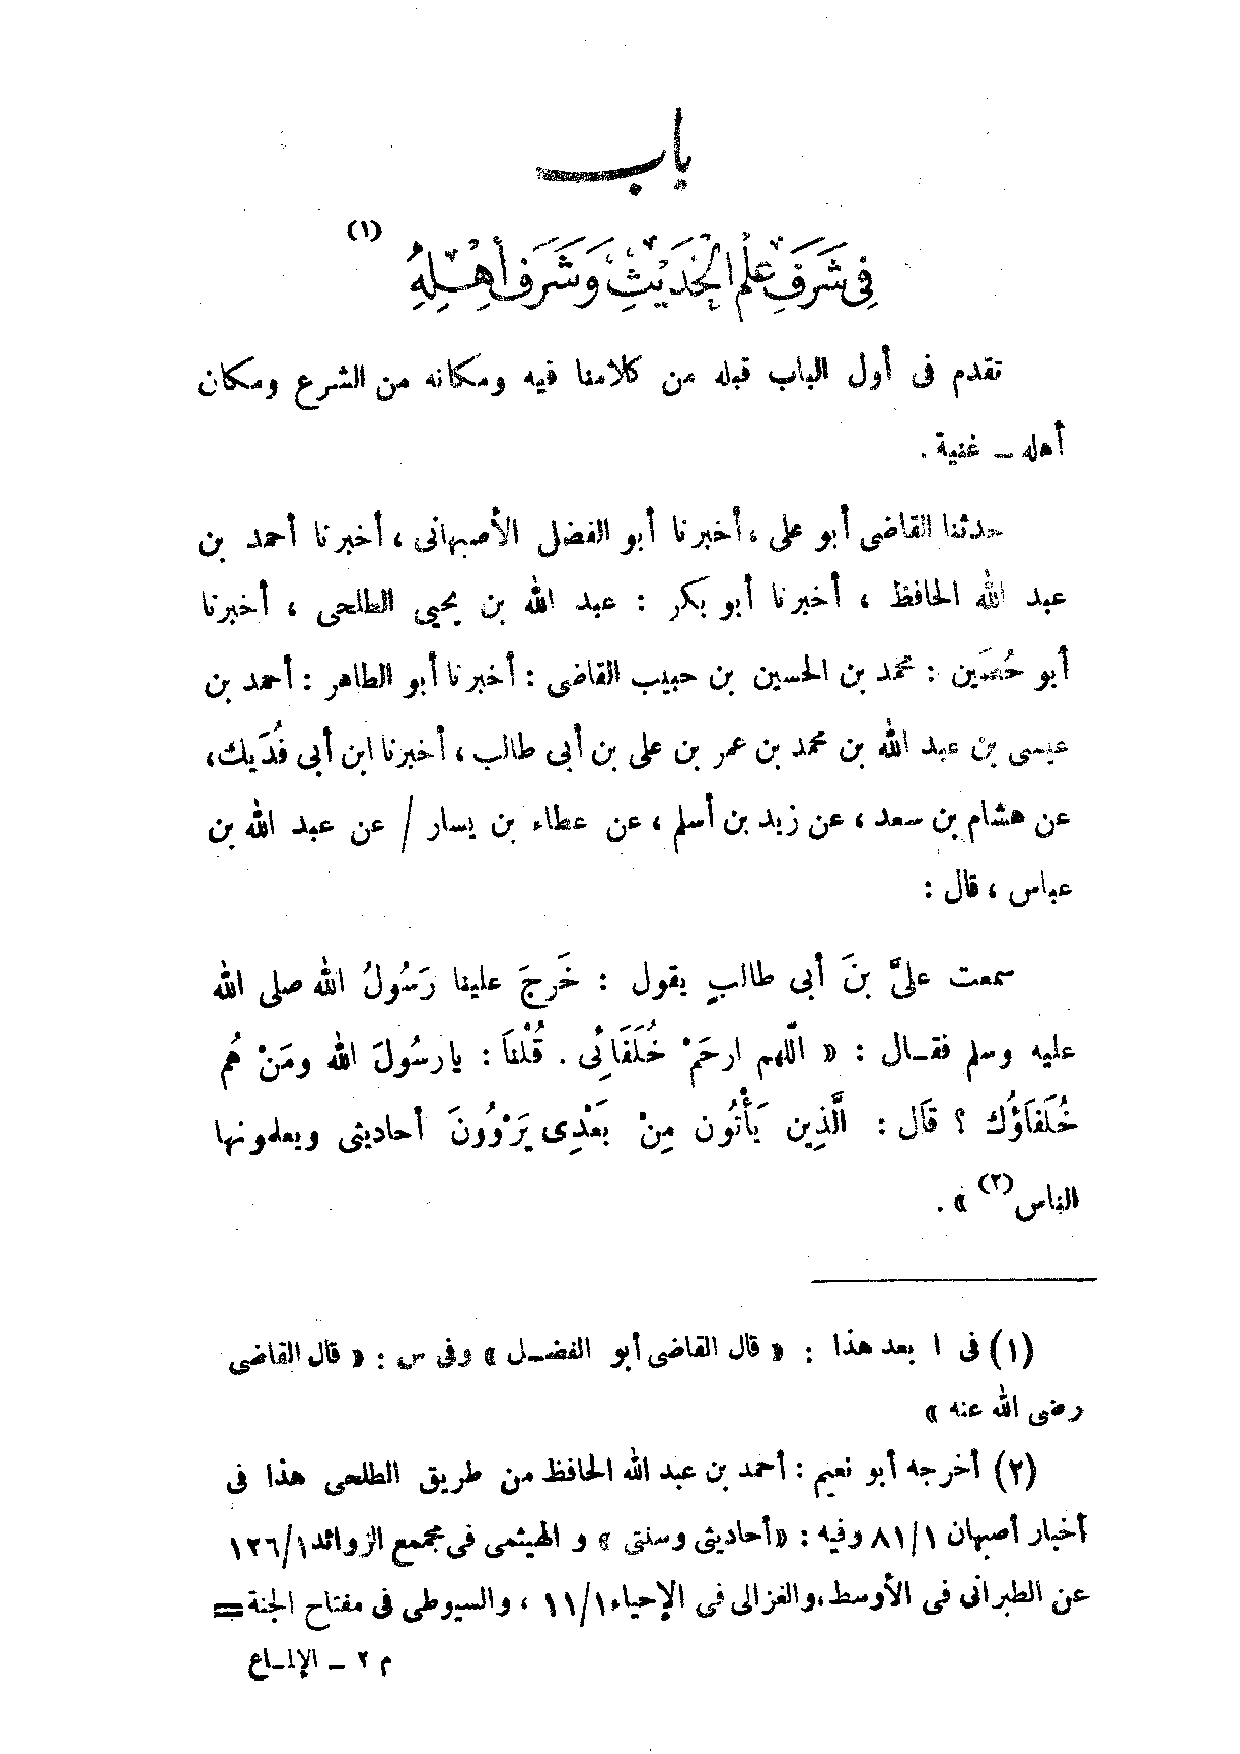 باب
فِى شَرَفِ عِلْمِ الْحَدِيْثِ وَشَرَفِ أَهْلِهِ (١)
تقدم فى أول الباب قبله من كلامنا فيه ومكانه من الشرع ومكان
أهله ـ غنية .
حدثنا القاضى أبو على ، أخبرنا أبو الفضل الأصبهانى ، أخبرنا أحمد بن
عبد الله الحافظ ، أخبرنا أبو بكر : عبد الله بن يحيى الطلحى ، أخبرنا
أبو حُصَين : محمد بن الحسين بن حبيب القاضى : أخبرنا أبو الطاهر : أحمد بن
عيسى بن عبد الله بن محمد بن عمر بن على بن أبى طالب ، أخبرنا ابن أبى فُدَيك ،
عن هشام بن سعد ، عن زيد بن أسلم ، عن عطاء بن يسار / عن عبد الله بن
عباس ، قال :
سمعت علىَّ بنَ أبى طالبٍ يقول : خَرجَ علينا رَسُولُ الله صلى الله
عليه وسلم فقـال : « اللّهم ارحَمْ خُلَفَائِى . قُلْنَا : يا رسُولَ الله ومَنْ هُم
خُلَفَاؤُك ؟ قَال : الَّذِين يَأْتُون مِنْ بَعْدِى يَرْوُونَ أحاديثى ويعلمونها
الناس (٢) » .
(١) فى ا بعد هذا : « قال القاضى أبو الفضـل » وفى س : « قال القاضى
رضى الله عنه »
(٢) أخرجه أبو نعيم : أحمد بن عبد الله الحافظ من طريق الطلحى هذا فى
أخبار أصبهان ٨١/١ وفيه : «أحاديثى وسنتى » و الهيثمى فى مجمع الزوائد ١٢٦/١
عن الطبرانى فى الأوسط، والغزالى فى الإحياء ١١/١ ، والسيوطى فى مفتاح الجنة =
م ٢ ـ الإلمـاع